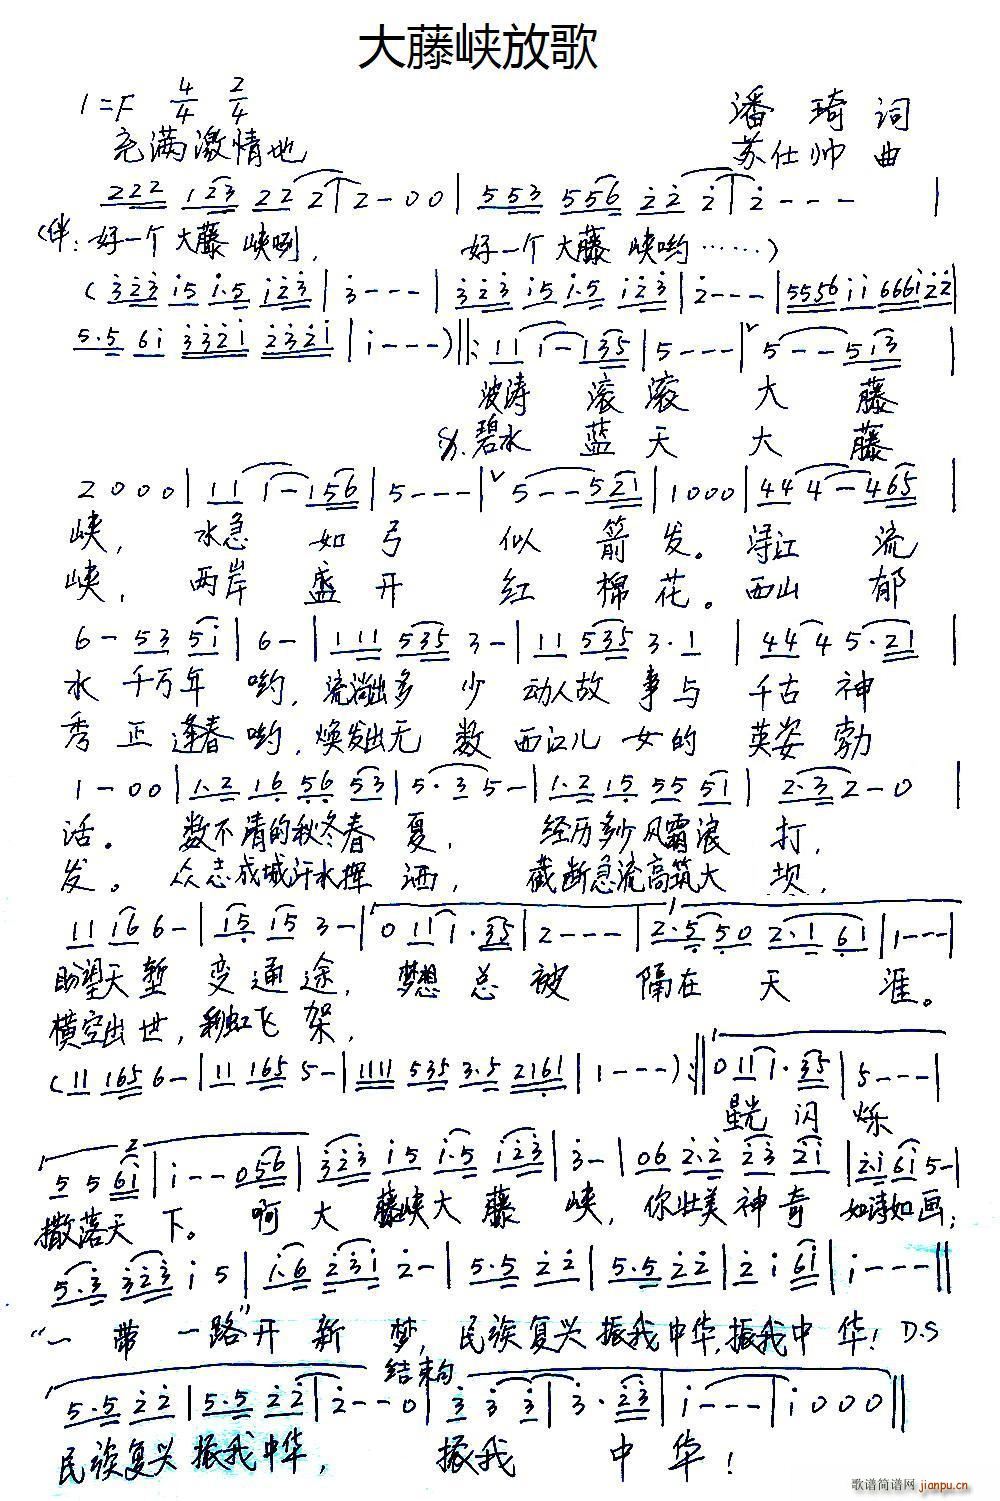 大藤峡放歌
1=F 4/4 2/4
潘琦 词
充满激情地
苏仕帅 曲
222 123 22 2 | 2-00 | 553 556 22 2 | 2--- |
(伴:好一个大藤峡咧, 好一个大藤峡哟……)
(323 i5 i·5 i23 | 3--- | 323 i5 i·5 i23 | 2--- | 5556 ii 666i22 |
5·5 6i 332i 232i | i--- )‖: 11 1-135 | 5--- | 5--513 |
波涛 滚滚 大藤
碧水 蓝天 大藤
2000 | 11 1-156 | 5--- | 5--521 | 1000 | 44 4-465 |
峡, 水急 如弓 似箭发。浔江 流
峡, 两岸 盛开 红棉花。西山 郁
6-53 5i | 6- | 111 535 3- | 11 535 3·1 | 44 4 5·21 |
水 千万年 哟, 流淌出多 少 动人故 事与 千古神
秀 正逢春 哟, 焕发出无 数 西江儿 女的 英姿勃
1-00 | 1·2 16 56 53 | 5·3 5- | 1·2 15 55 51 | 2·3 2-0 |
话。 数不清的秋冬春 夏, 经历多少风霜浪 打,
发。 众志成城汗水挥 洒, 截断急流高筑大 坝,
11 16 6- | 15 15 3- | 0 11 1·35 | 2--- | 2·5 50 2·1 61 | 1--- |
盼望天堑 变通途, 梦想总被 隔在天 涯。
横空出世, 彩虹飞架,
(11 165 6- | 11 165 5- | 1111 535 3·5 2161 | 1--- ) :‖ 0 11 1·35 | 5--- |
星光 闪烁
5 5 6i | i--056 | 323 i5 i·5 i23 | 3- | 06 2·2 23 2i | 2·i 6i 5- |
撒落天 下。 啊 大 藤峡大 藤 峡, 你壮美神奇 如诗如画;
5·3 323 i 5 | i·6 23i 2- | 5·5 22 | 5·5 22 | 2 i 6i | i--- ‖
“一 带 一路”开 新 梦, 民族复兴 振我中华,振我中 华! D.S
结束句
5·5 22 | 5·5 22 | 2--0 | 3 3 3 | 3·23 | i--- | i000 ‖
民族复兴 振我中华, 振我 中 华!
歌谱简谱网
jianpu.cn